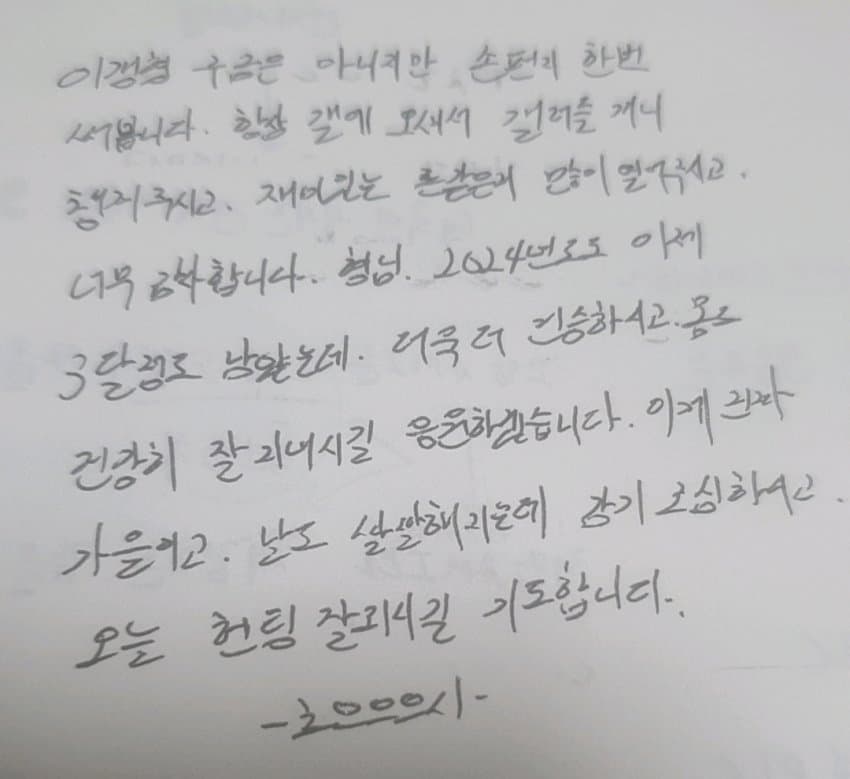 이갱형 구금은 아니지만 손편지 한번
써봅니다. 항상 갤에 오셔서 갤러들 개니
챙겨주시고. 재미있는 많이 열어주시고.
너무 감사합니다. 형님. 2024년도도 이제
3달정도 남았는데. 더욱 더 건승하시고. 몸도
건강히 잘 지내시길 응원하겠습니다. 이제 진짜
가을이고. 날도 쌀쌀해지는데 감기 조심하시고.
오늘 헌팅 잘되시길 기도합니다.